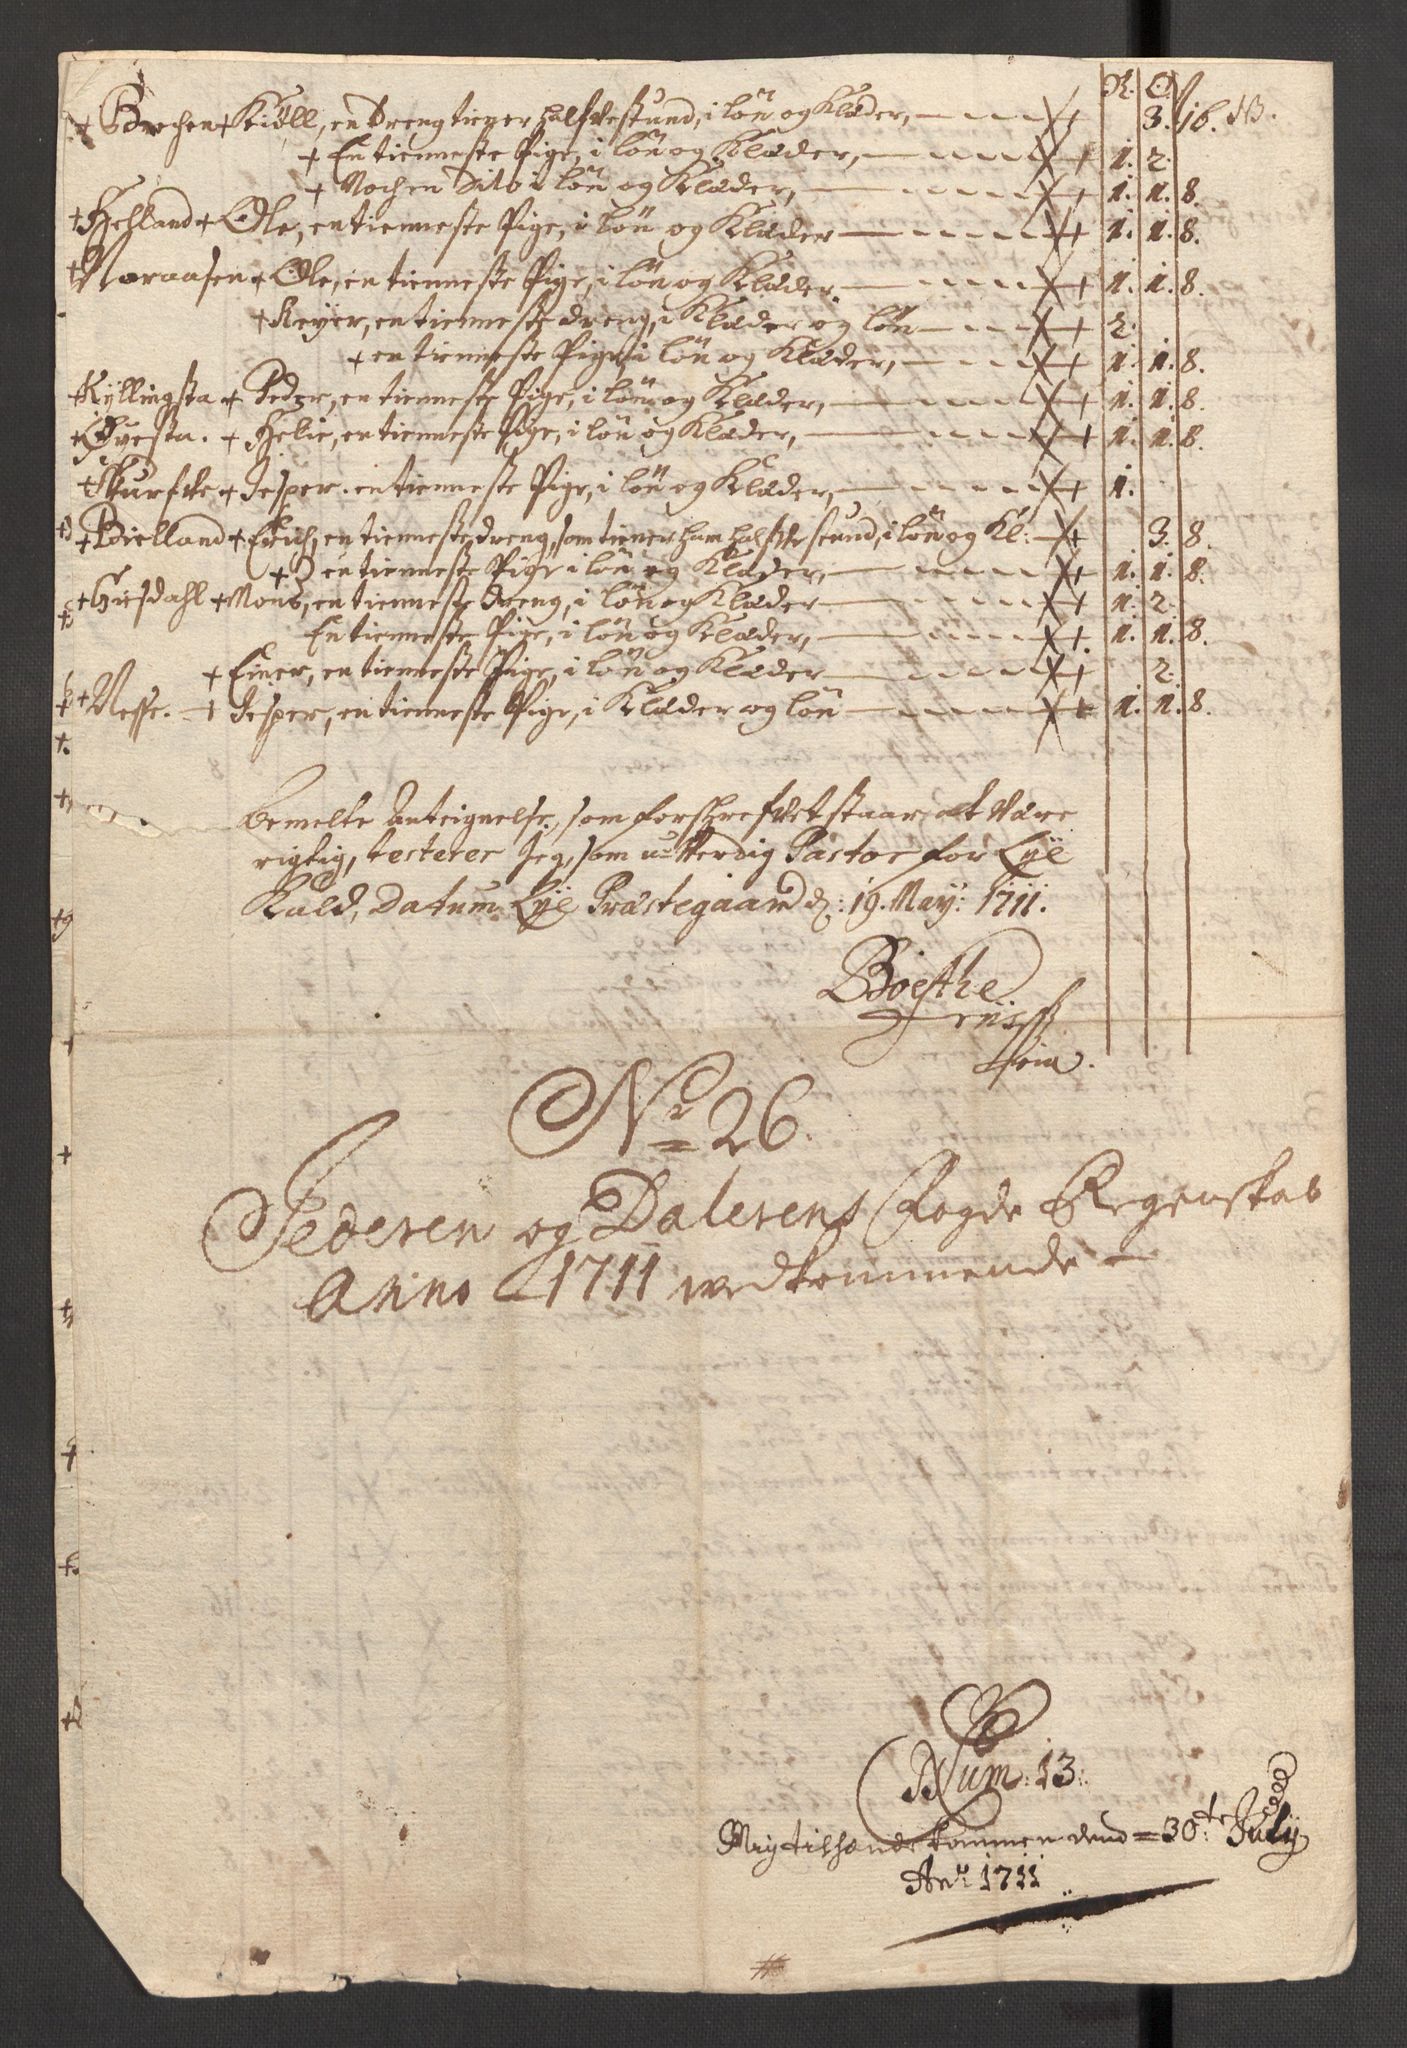 R. O. S
+ Brechen + Kiöll, en dreng tiener halfvestund, i lön og Klæder, 3. 16. NB.
+ En tienneste Pige, i lön og Klæder, 1. 2.
+ Noch en dito i lön og Klæder, 1. 1. 8.
+ Helland + Ole, en tienneste Pige, i lön og Klæder 1. 1. 8.
+ Noraasen + Ole, en tienneste Pige, i lön og Klæder. 1. 1. 8.
+ Reÿer, en tienneste dreng, i Klæder og lön 2.
+ en tienneste Pige, i lön og Klæder, 1. 1. 8.
+ Kÿllingsta + Peder, en tienneste Pige, i lön og Klæder, 1. 1. 8.
+ Helie, en tienneste Pige, i lön og Klæder, 1. 1. 8.
+ Skurfve + Jesper. en tienneste Pige, i lön og Klæder, 1.
+ Bielland + Erich, en tienneste dreng, som tiener ham halfve stund, i lön og Kl: 3. 8.
+ en tienneste Pige i lön og Klæder, 1. 1. 8.
+ Giesdahl + Mons, en tienneste dreng, i lön og Klæder 1. 2.
En tienneste Pige, i lön og Klæder, 1. 1. 8.
+ Einer, en tienneste Pige, i lön og Klæder 2.
+ Nesse. + Jesper, en tienneste Pige, i Klæder og lön 1. 1. 8.
bemelte Anteignelse, som forskrefvet staar, at Være
rigtig, testerer Jeg, som uverdig Pastor for Lÿe
Kald, Datum Lÿe Præstegaard d: 19. Maÿ: 1711.
Boethe
Nr 26.
Jederen og Dalerens Fogde Regenskab
Anno 1711 vedkommende
Num: 13:
Mig tilhænde kommen dend = 30:te Julÿ
An: 1711